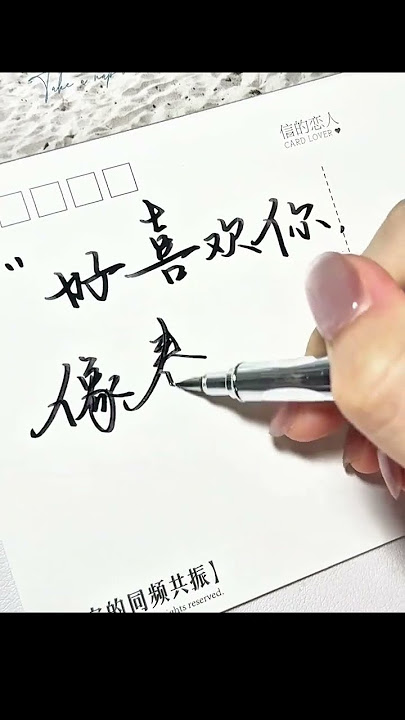 Take a nap
信的恋人
CARD LOVER
"好喜欢你,
像
的同频共振】
rights reserved.